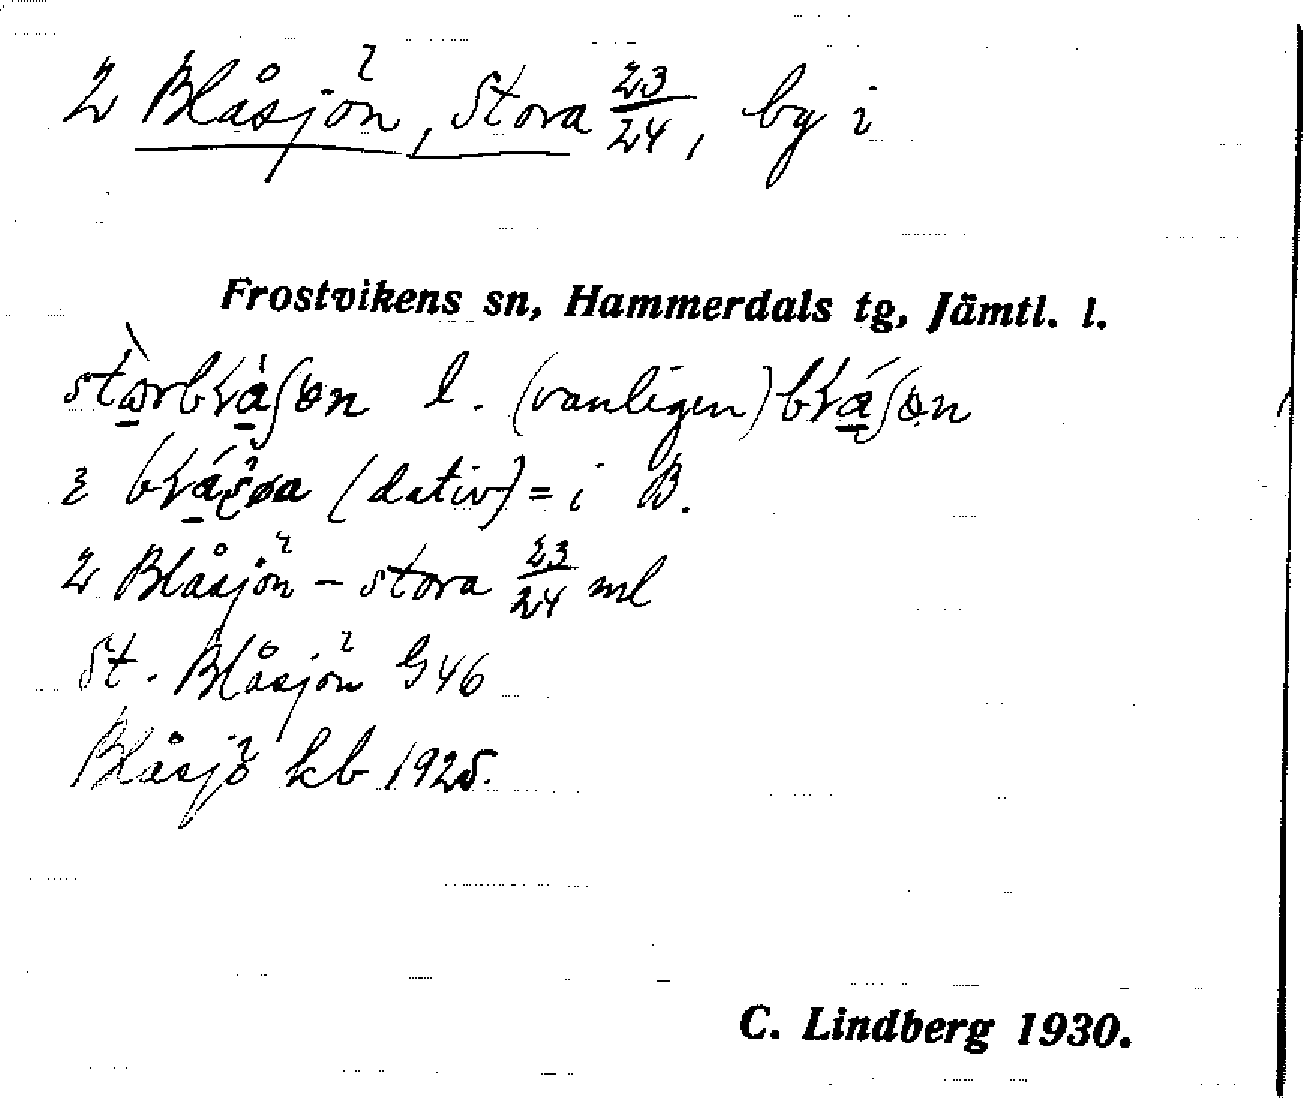 2 Blåsjön, Stora 23/24, by i
Frostvikens sn, Hammerdals tg, Jämtl. l.
l. (vanligen)
(dativ) = i B.
2 Blåsjön – stora 23/24 ml
St. Blåsjön G46
Blåsjö kb 1925.
C. Lindberg 1930.